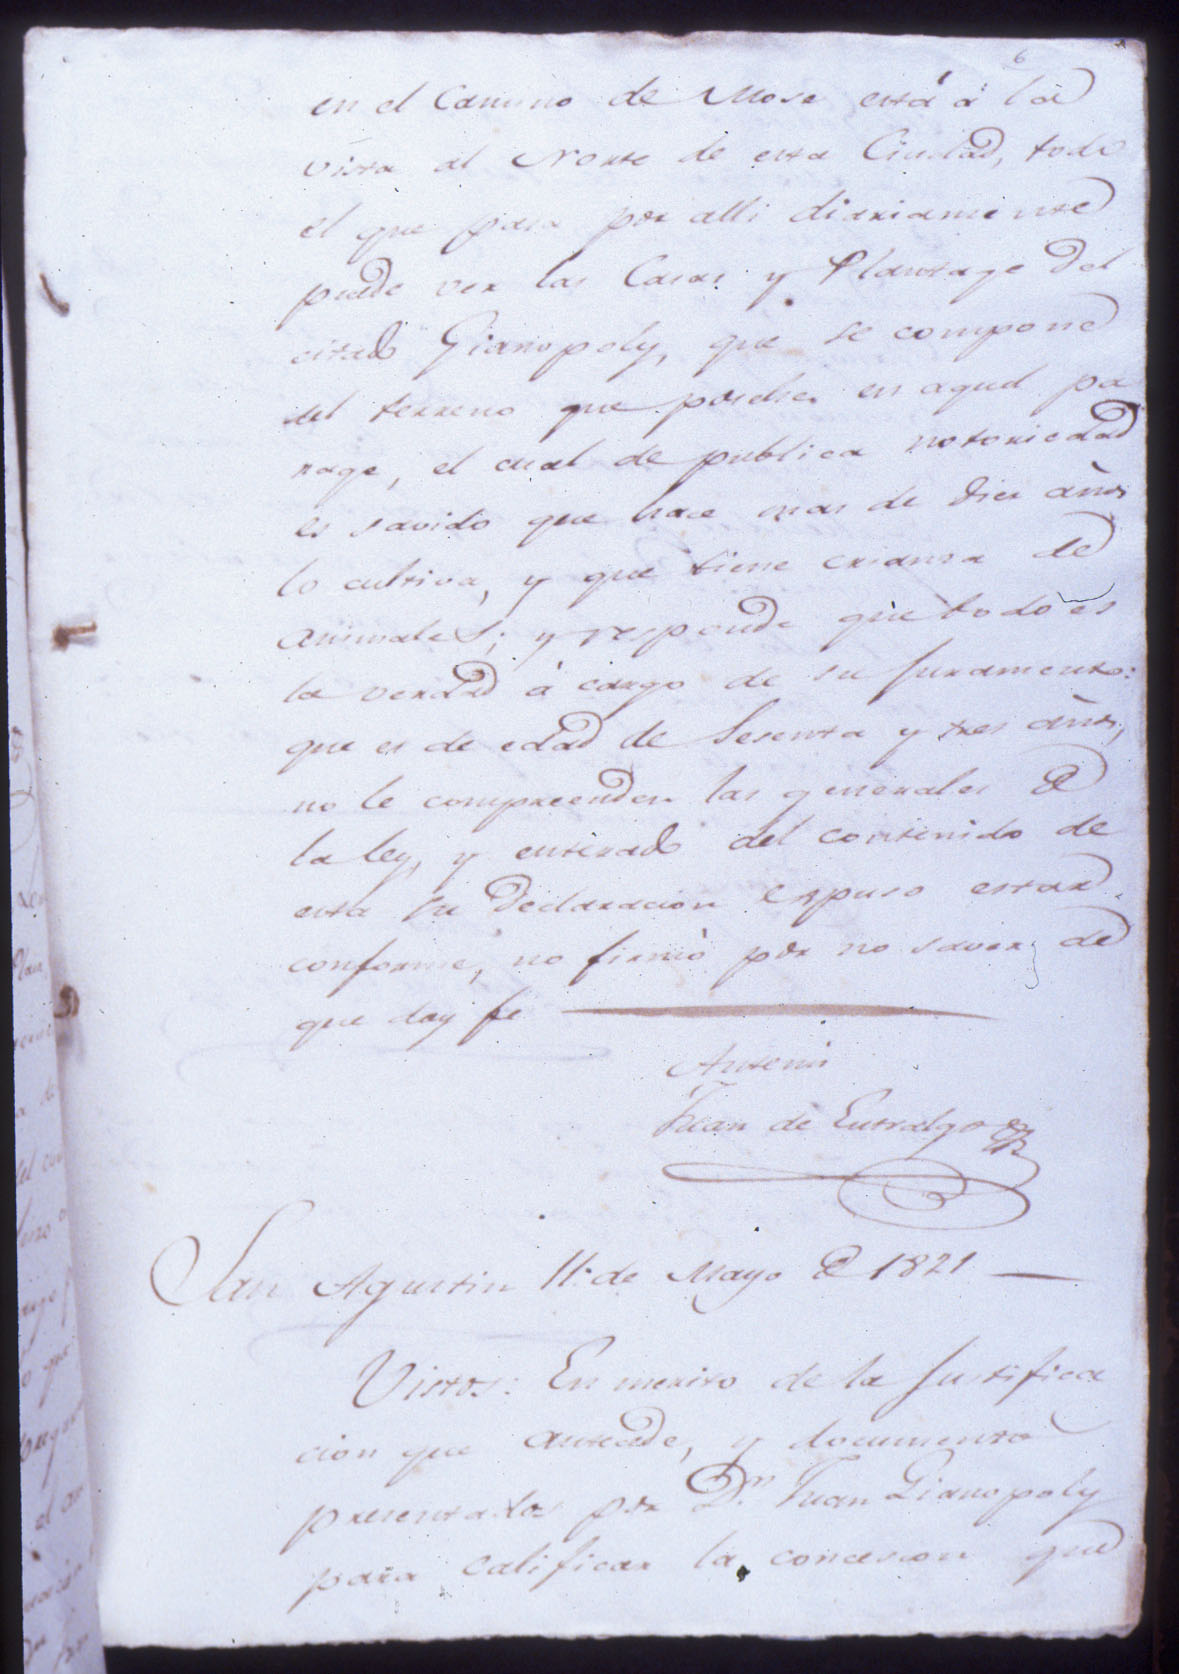 6
en el Camino de Mose está á la
vista al Norte de esta Ciudad, todo
el que pasa por alli diariamente
puede ver las Casas y Plantage del
citado Gianopoly, que se compone
del terreno que poschee en aquel pa
rage, el cual de publica notoriedad
es savido que hace mas de diez años
lo cultiva, y que tiene crianza de
animales; y responde que todo es
la verdad á cargo de su juramento:
que es de edad de Sesenta y tres años,
no le comprehenden las generales de
la ley, y enterado del contenido de
esta su declaracion expuso estar
conforme, no firmó por no saver, de
que doy fe
Antemi
Juan de Entralgo
San Agustin 11. de Mayo de 1821
Vistos: En merito de la justifica
cion que antecede, y documento
presentados por Dn. Juan Gianopoly
para calificar la concesion que